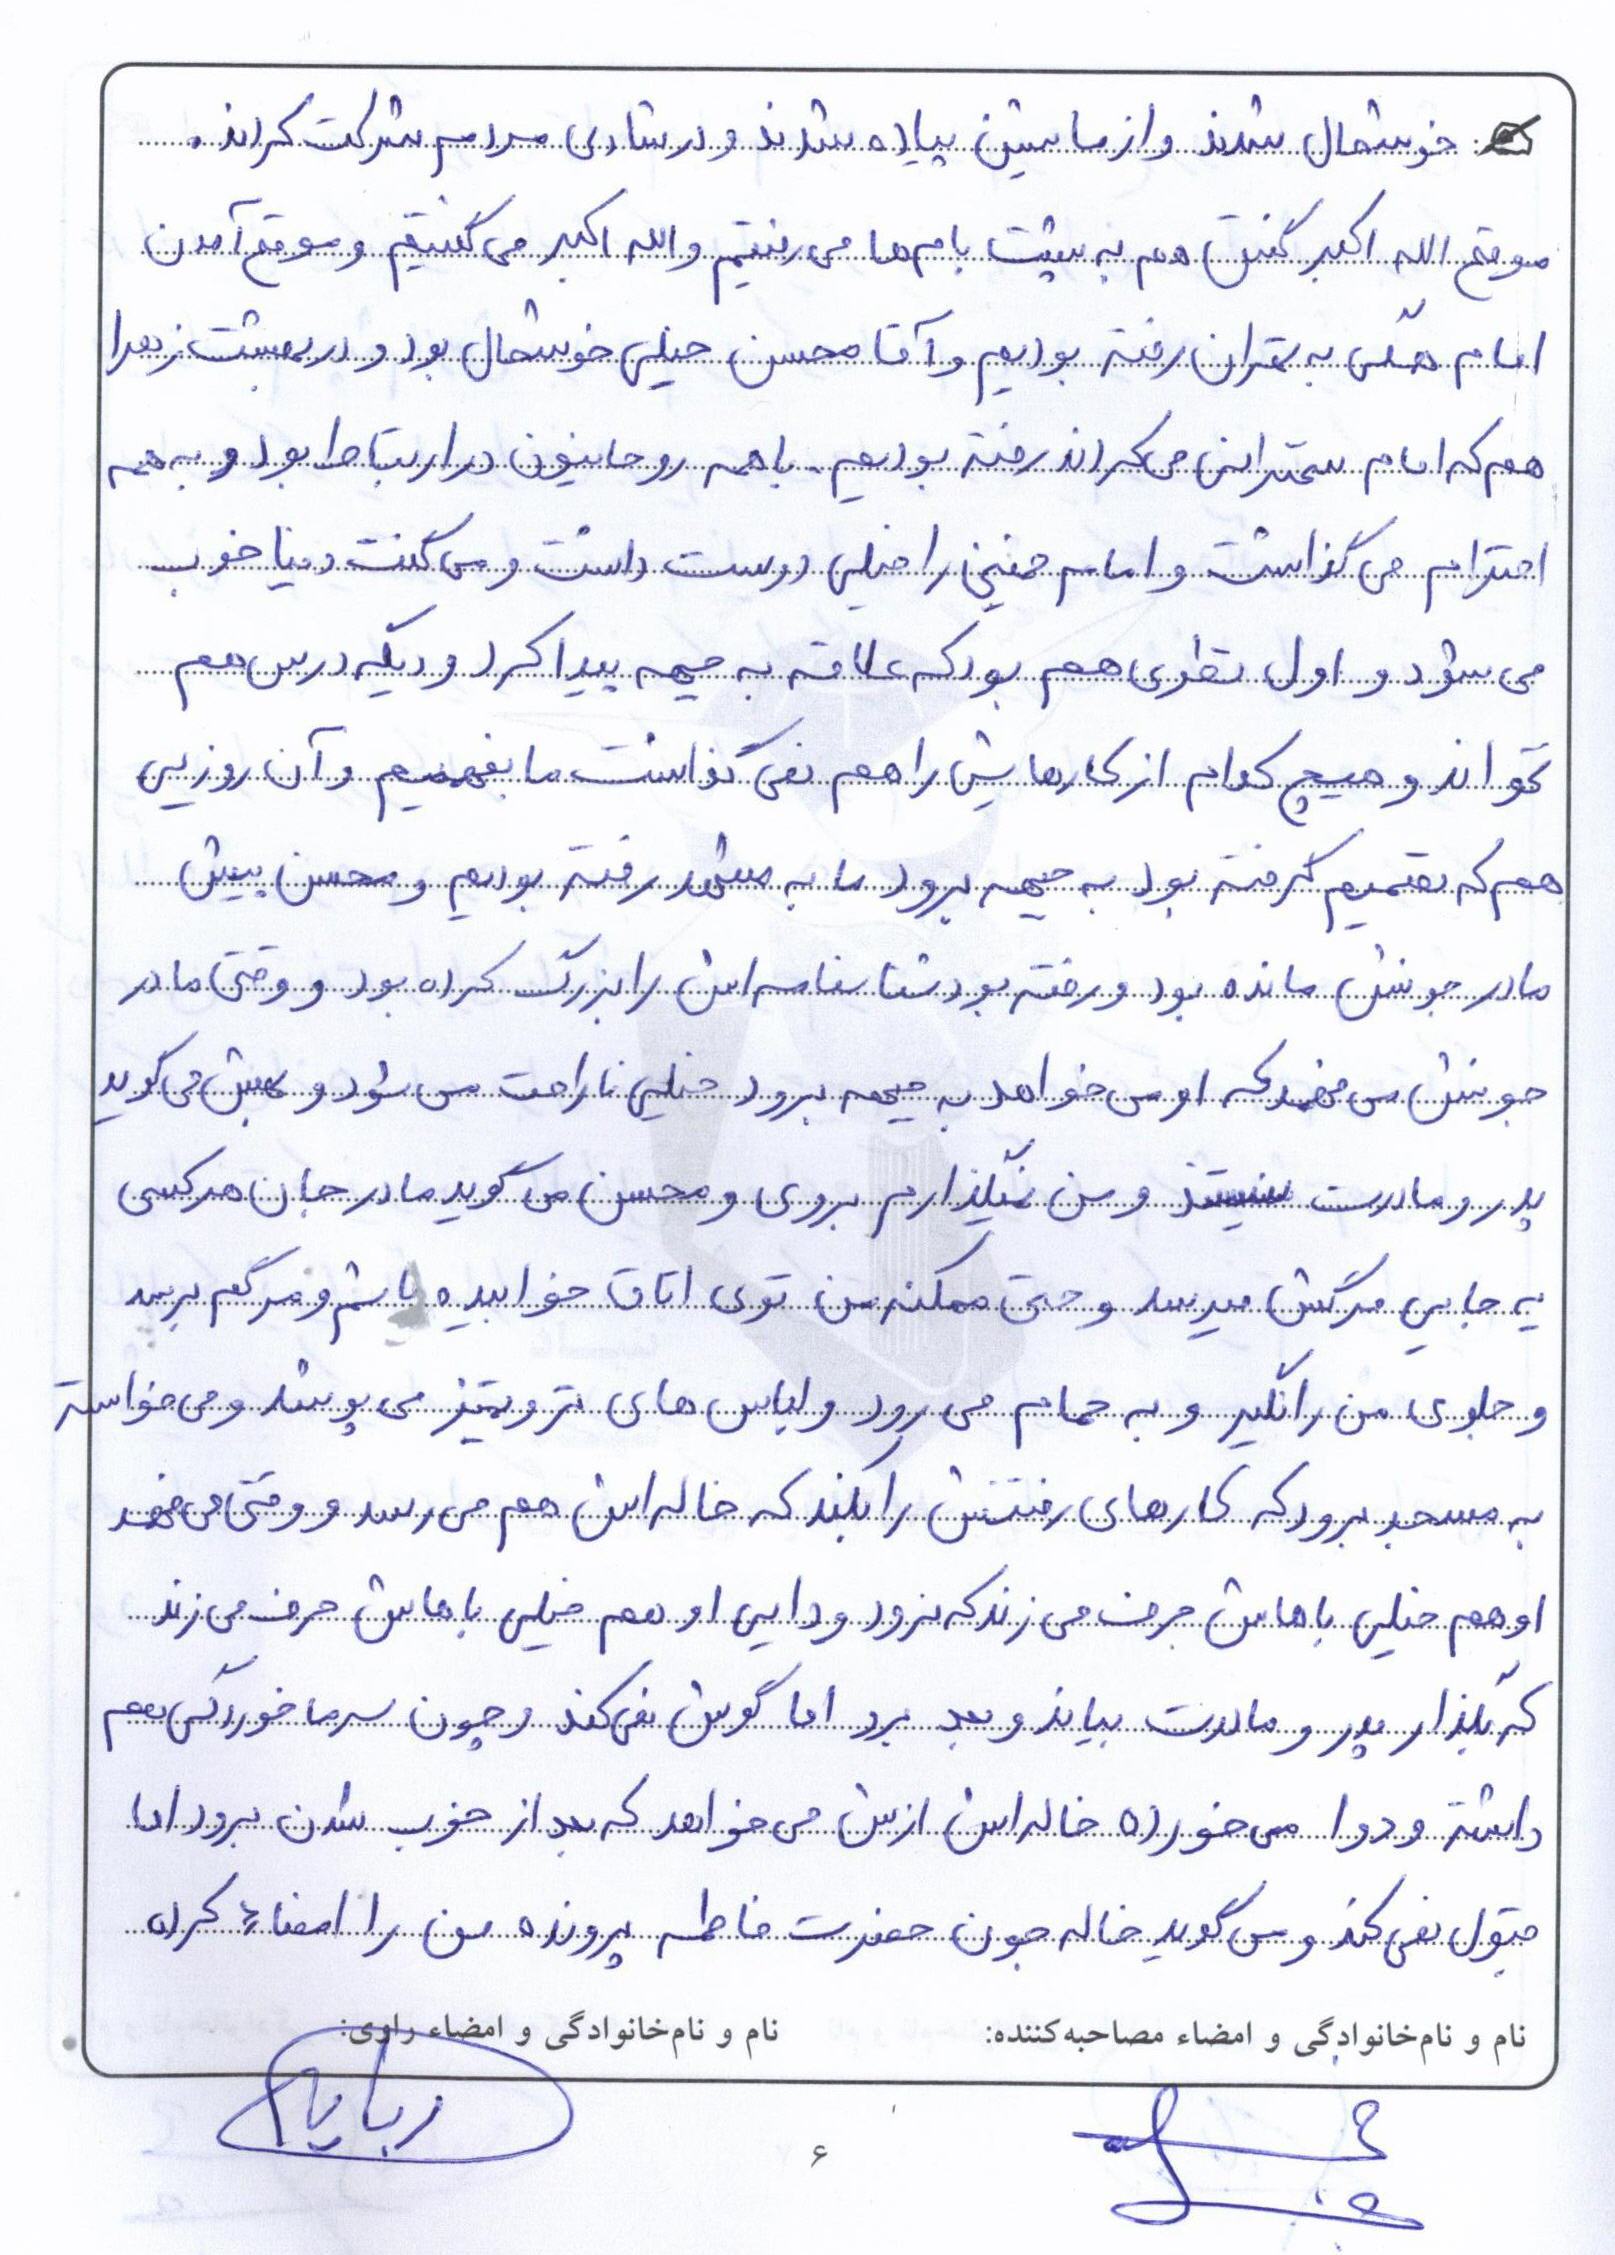 خوشحال شدند و از ماشین پیاده شدند و در شادی مردم شرکت کردند.
موقع الله اکبر گفتن هم به پشت بام‌ها می‌رفتیم و الله اکبر می‌گفتیم و موقع آمدن
امام همگی به تهران رفته بودیم و آقا محسن خیلی خوشحال بود و در بهشت زهرا
هم که امام سخنرانی می‌کردند رفته بودیم. با همه روحانیون در ارتباط بود و به همه
احترام می‌گذاشت و امام خمینی را خیلی دوست داشت و می‌گفت دنیا خوب
می‌شود و اول نظری هم بود که علاقه به جبهه پیدا کرد و دیگه درس هم
نخواند و هیچ کدام از کارهایش را هم نمی‌گذاشت ما بفهمیم و آن روزیی
هم که تصمیم گرفته بود به جبهه برود ما به مشهد رفته بودیم و محسن پیش
مادر جونش مانده بود و رفته بود شناسنامه‌اش را بزرگ کرده بود و وقتی مادر
جونش می‌فهمد که او می‌خواهد به جبهه برود خیلی ناراحت می‌شود و بهش می‌گوید
پدر و مادرت نیستند و من نمیگذارم بروی و محسن می‌گوید مادر جان هر کسی
یه جایی مرگش میرسد و حتی ممکنه من توی اتاق خوابیده باشم و مرگم برسد
و جلوی من را نگیر و به حمام می‌رود و لباس‌های تر و تمیز می‌پوشد و می‌خواسته
به مسجد برود که کارهای رفتنش را بکند که خاله‌اش هم می‌رسد و وقتی می‌فهمد
او هم خیلی باهاش حرف می‌زند که نرود و دایی او هم خیلی باهاش حرف می‌زند
که بگذار پدر و مادرت بیاند و بعد برو اما گوش نمی‌کند و چون سرما خوردگی هم
داشته و دوا می‌خورده خاله‌اش ازش می‌خواهد که بعد از خوب شدن برود اما
قبول نمی‌کند و می‌گوید خاله جون حضرت فاطمه پرونده من را امضاء کرده
نام و نام‌خانوادگی و امضاء مصاحبه‌کننده: نام و نام‌خانوادگی و امضاء راوی:
۶